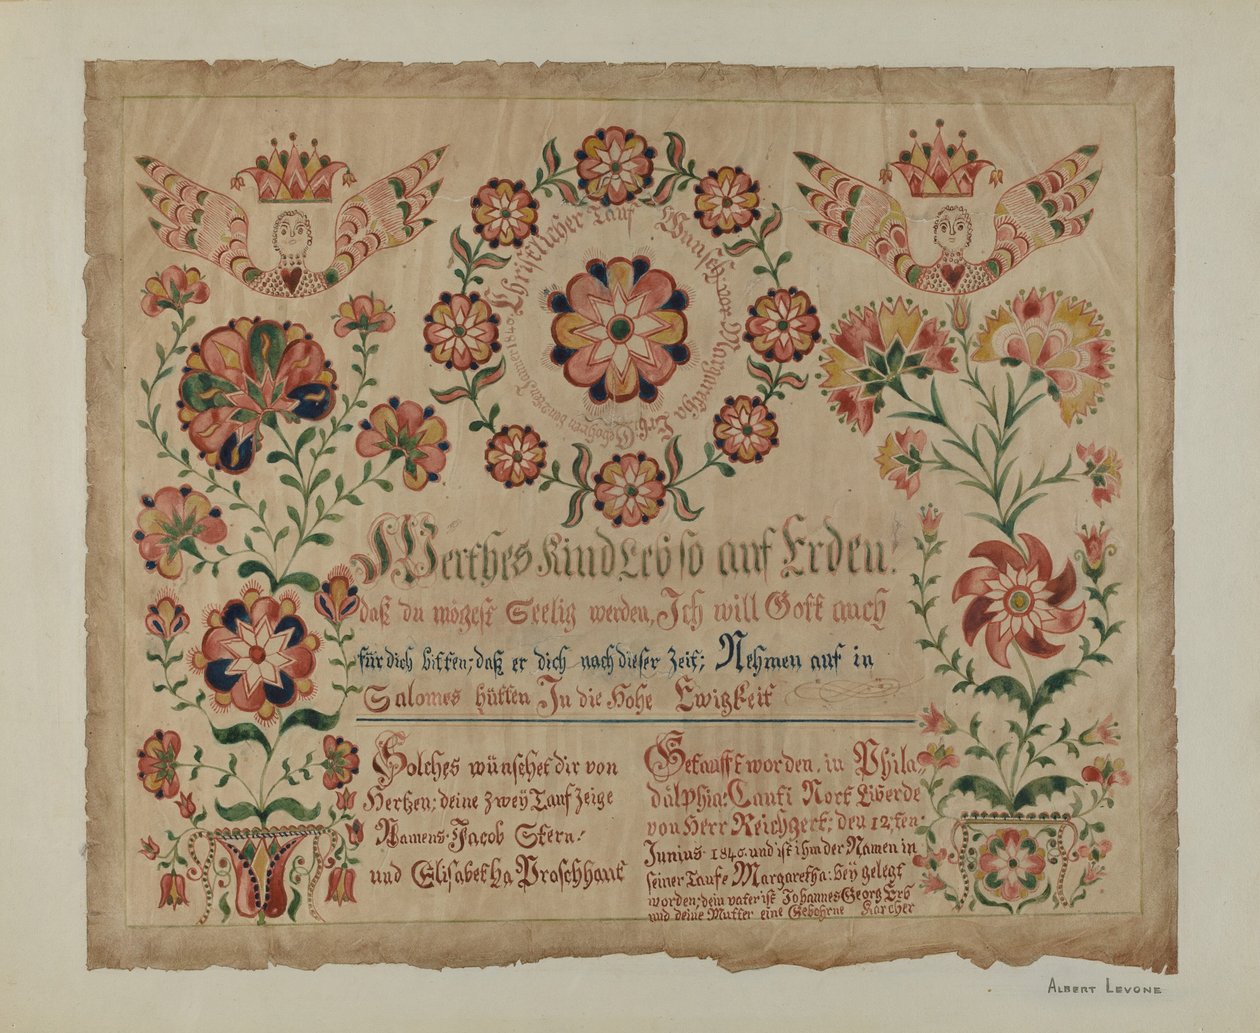 Christlicher Tauf Wunsch, vor Margaretha Erb, Gebohren den 2ten Januer 1840.
Werthes Kind Leb so auf Erden!
daß du mögest Seelig werden, Ich will Gott auch
für dich bitten; daß er dich nach dieser Zeit; Nehmen auf in
Salomes hütten In die Hohe Ewigkeit
Solches wünschet dir von
Hertzen; deine zweÿ Tauf Zeige
Namens Jacob Stern:
und Elisabetha Proschhaut
Getaufft worden, in Phila-
dälphia: Caunti Nort Liberde
von Herr Reichgert; den 12,ten
Junius 1840. und ist ihm der Namen in
seiner Taufe Margaretha: beÿ gelegt
worden; dein vater ist Johannes Georg Erb
und deine Mutter eine Gebohrne Karcher
ALBERT LEVONE